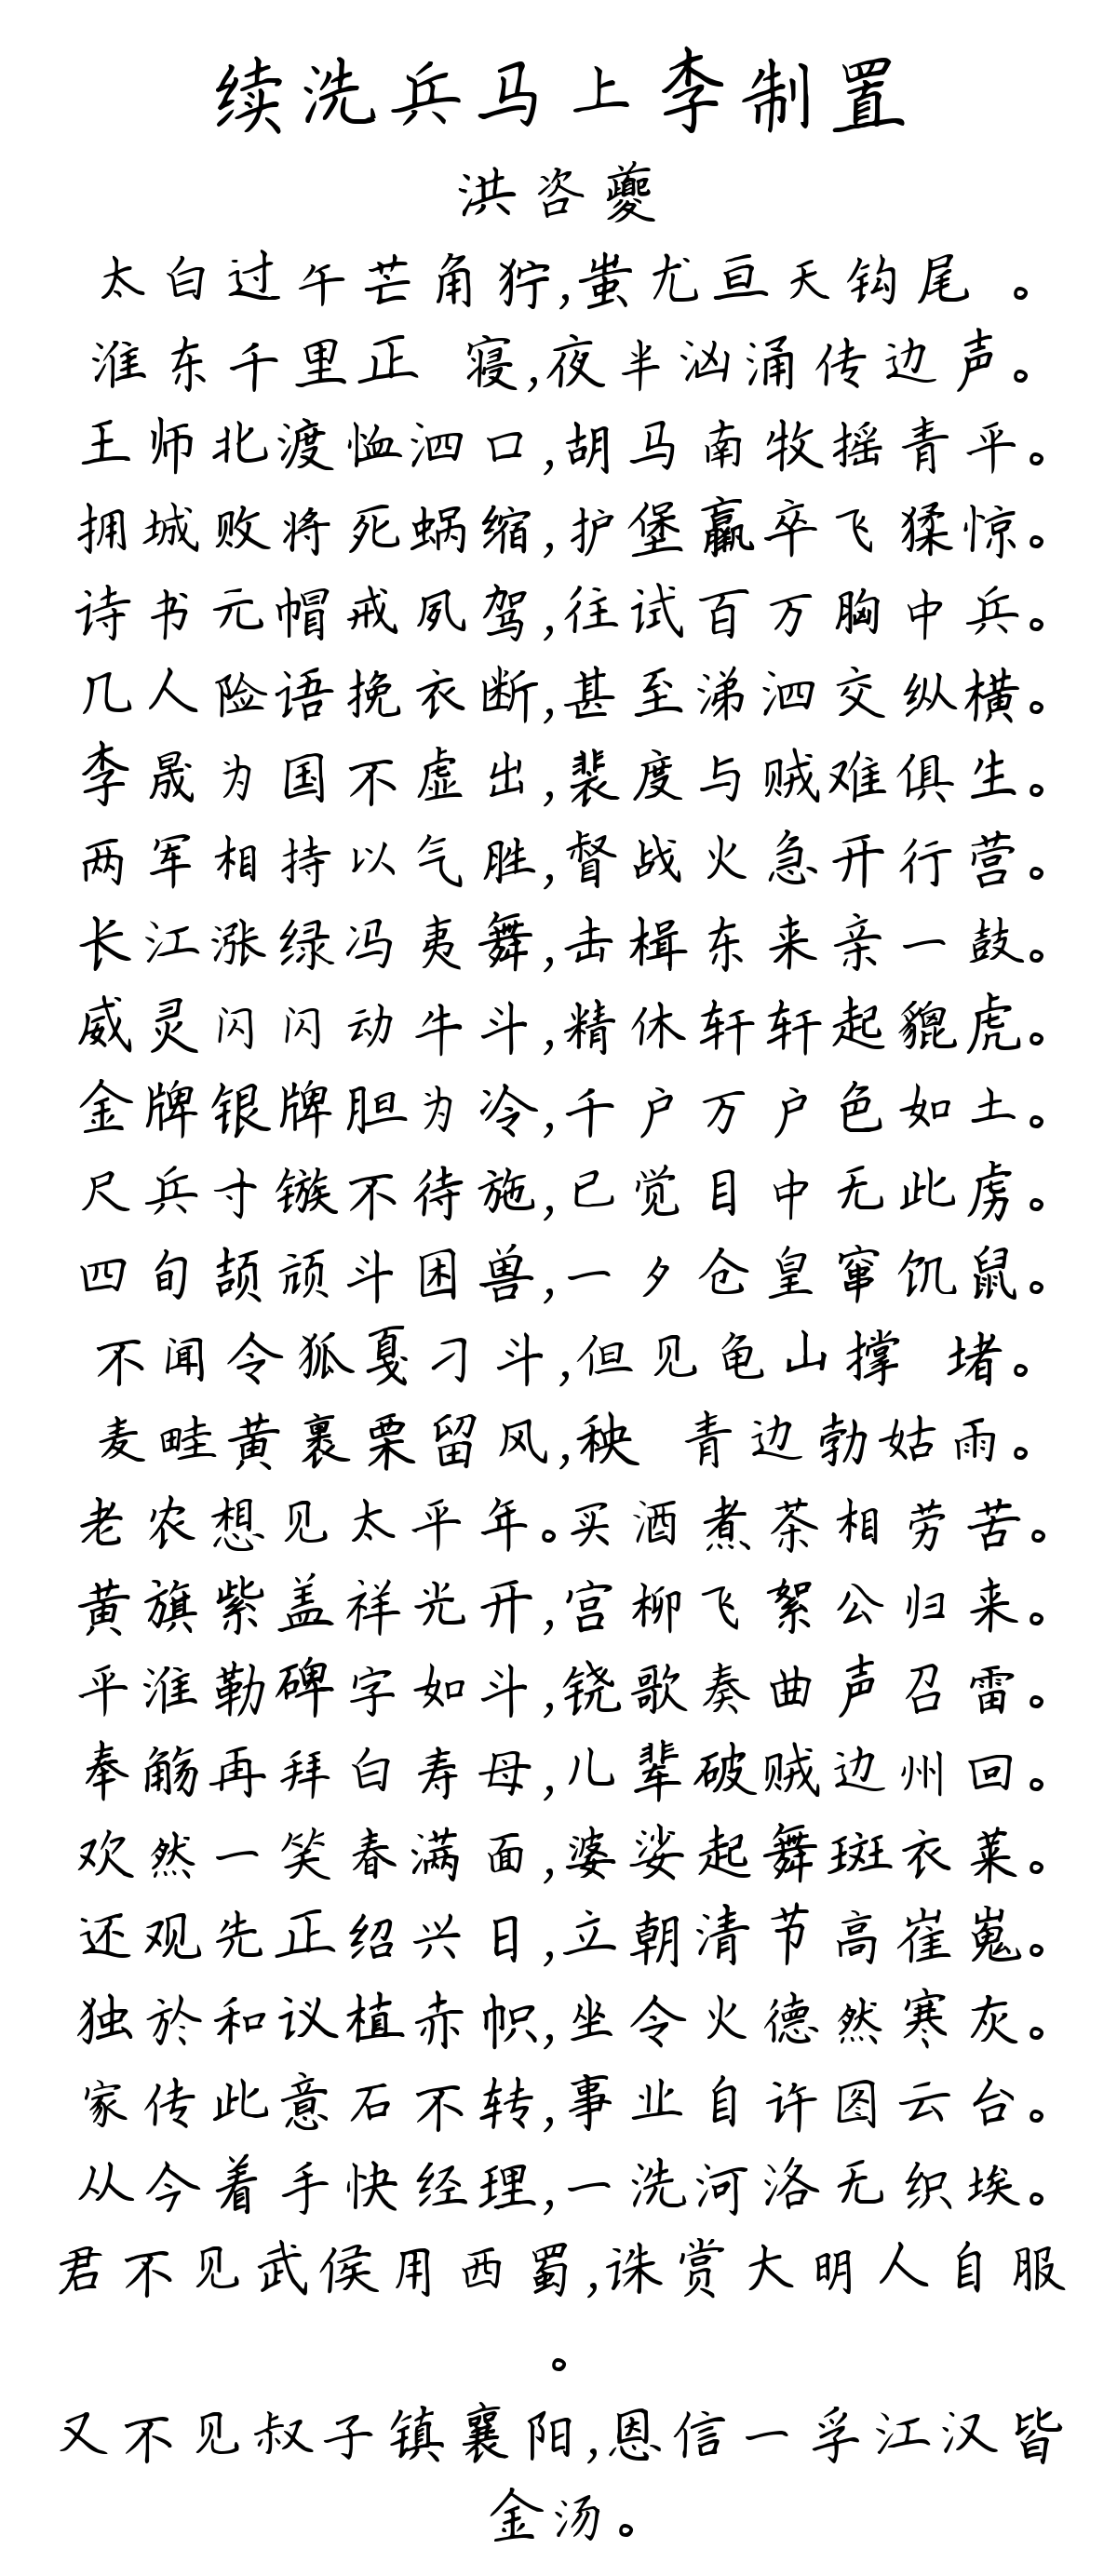 续洗兵马上李制置
洪咨夔
太白过午芒角狞,蚩尤亘天钩尾 。
淮东千里正 寝,夜半汹涌传边声。
王师北渡恤泗口,胡马南牧摇青平。
拥城败将死蜗缩,护堡羸卒飞猱惊。
诗书元帽戒夙驾,往试百万胸中兵。
几人险语挽衣断,甚至涕泗交纵横。
李晟为国不虚出,裴度与贼难俱生。
两军相持以气胜,督战火急开行营。
长江涨绿冯夷舞,击楫东来亲一鼓。
威灵闪闪动牛斗,精休轩轩起貔虎。
金牌银牌胆为冷,千户万户色如土。
尺兵寸镞不待施,已觉目中无此虏。
四旬颉颃斗困兽,一夕仓皇窜饥鼠。
不闻令狐戛刁斗,但见龟山撑 堵。
麦畦黄裹栗留风,秧 青边勃姑雨。
老农想见太平年。买酒煮茶相劳苦。
黄旗紫盖祥光开,宫柳飞絮公归来。
平淮勒碑字如斗,铙歌奏曲声召雷。
奉觞再拜白寿母,儿辈破贼边州回。
欢然一笑春满面,婆娑起舞斑衣莱。
还观先正绍兴日,立朝清节高崔嵬。
独於和议植赤帜,坐令火德然寒灰。
家传此意石不转,事业自许图云台。
从今着手快经理,一洗河洛无织埃。
君不见武侯用西蜀,诛赏大明人自服
。
又不见叔子镇襄阳,恩信一孚江汉皆
金汤。